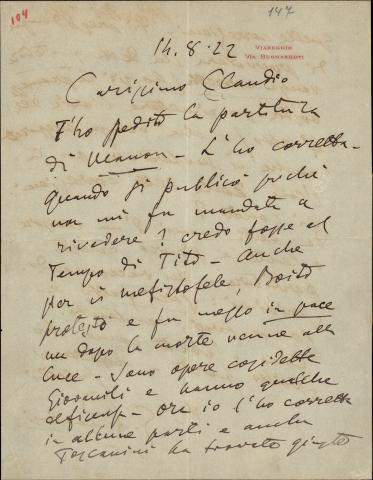 104
147
14.8.22
VIAREGGIO
VIA BUONARROTI
Carissimo Claudio
T'ho spedito la partitura
di Manon - L'ho corretta -
Quando si pubblicò perchè
non mi fu mandata a
rivedere? credo fosse al
tempo di Tito - Anche
per il mefistofele, Boito
protestò e fu messo in pace
ma dopo la morte venne alla
luce - Sono opere cosidette
giovanili e hanno qualche
deficienza - ora io l'ho corretta
in alcune parti e anche
Toscanini ha trovato giusto